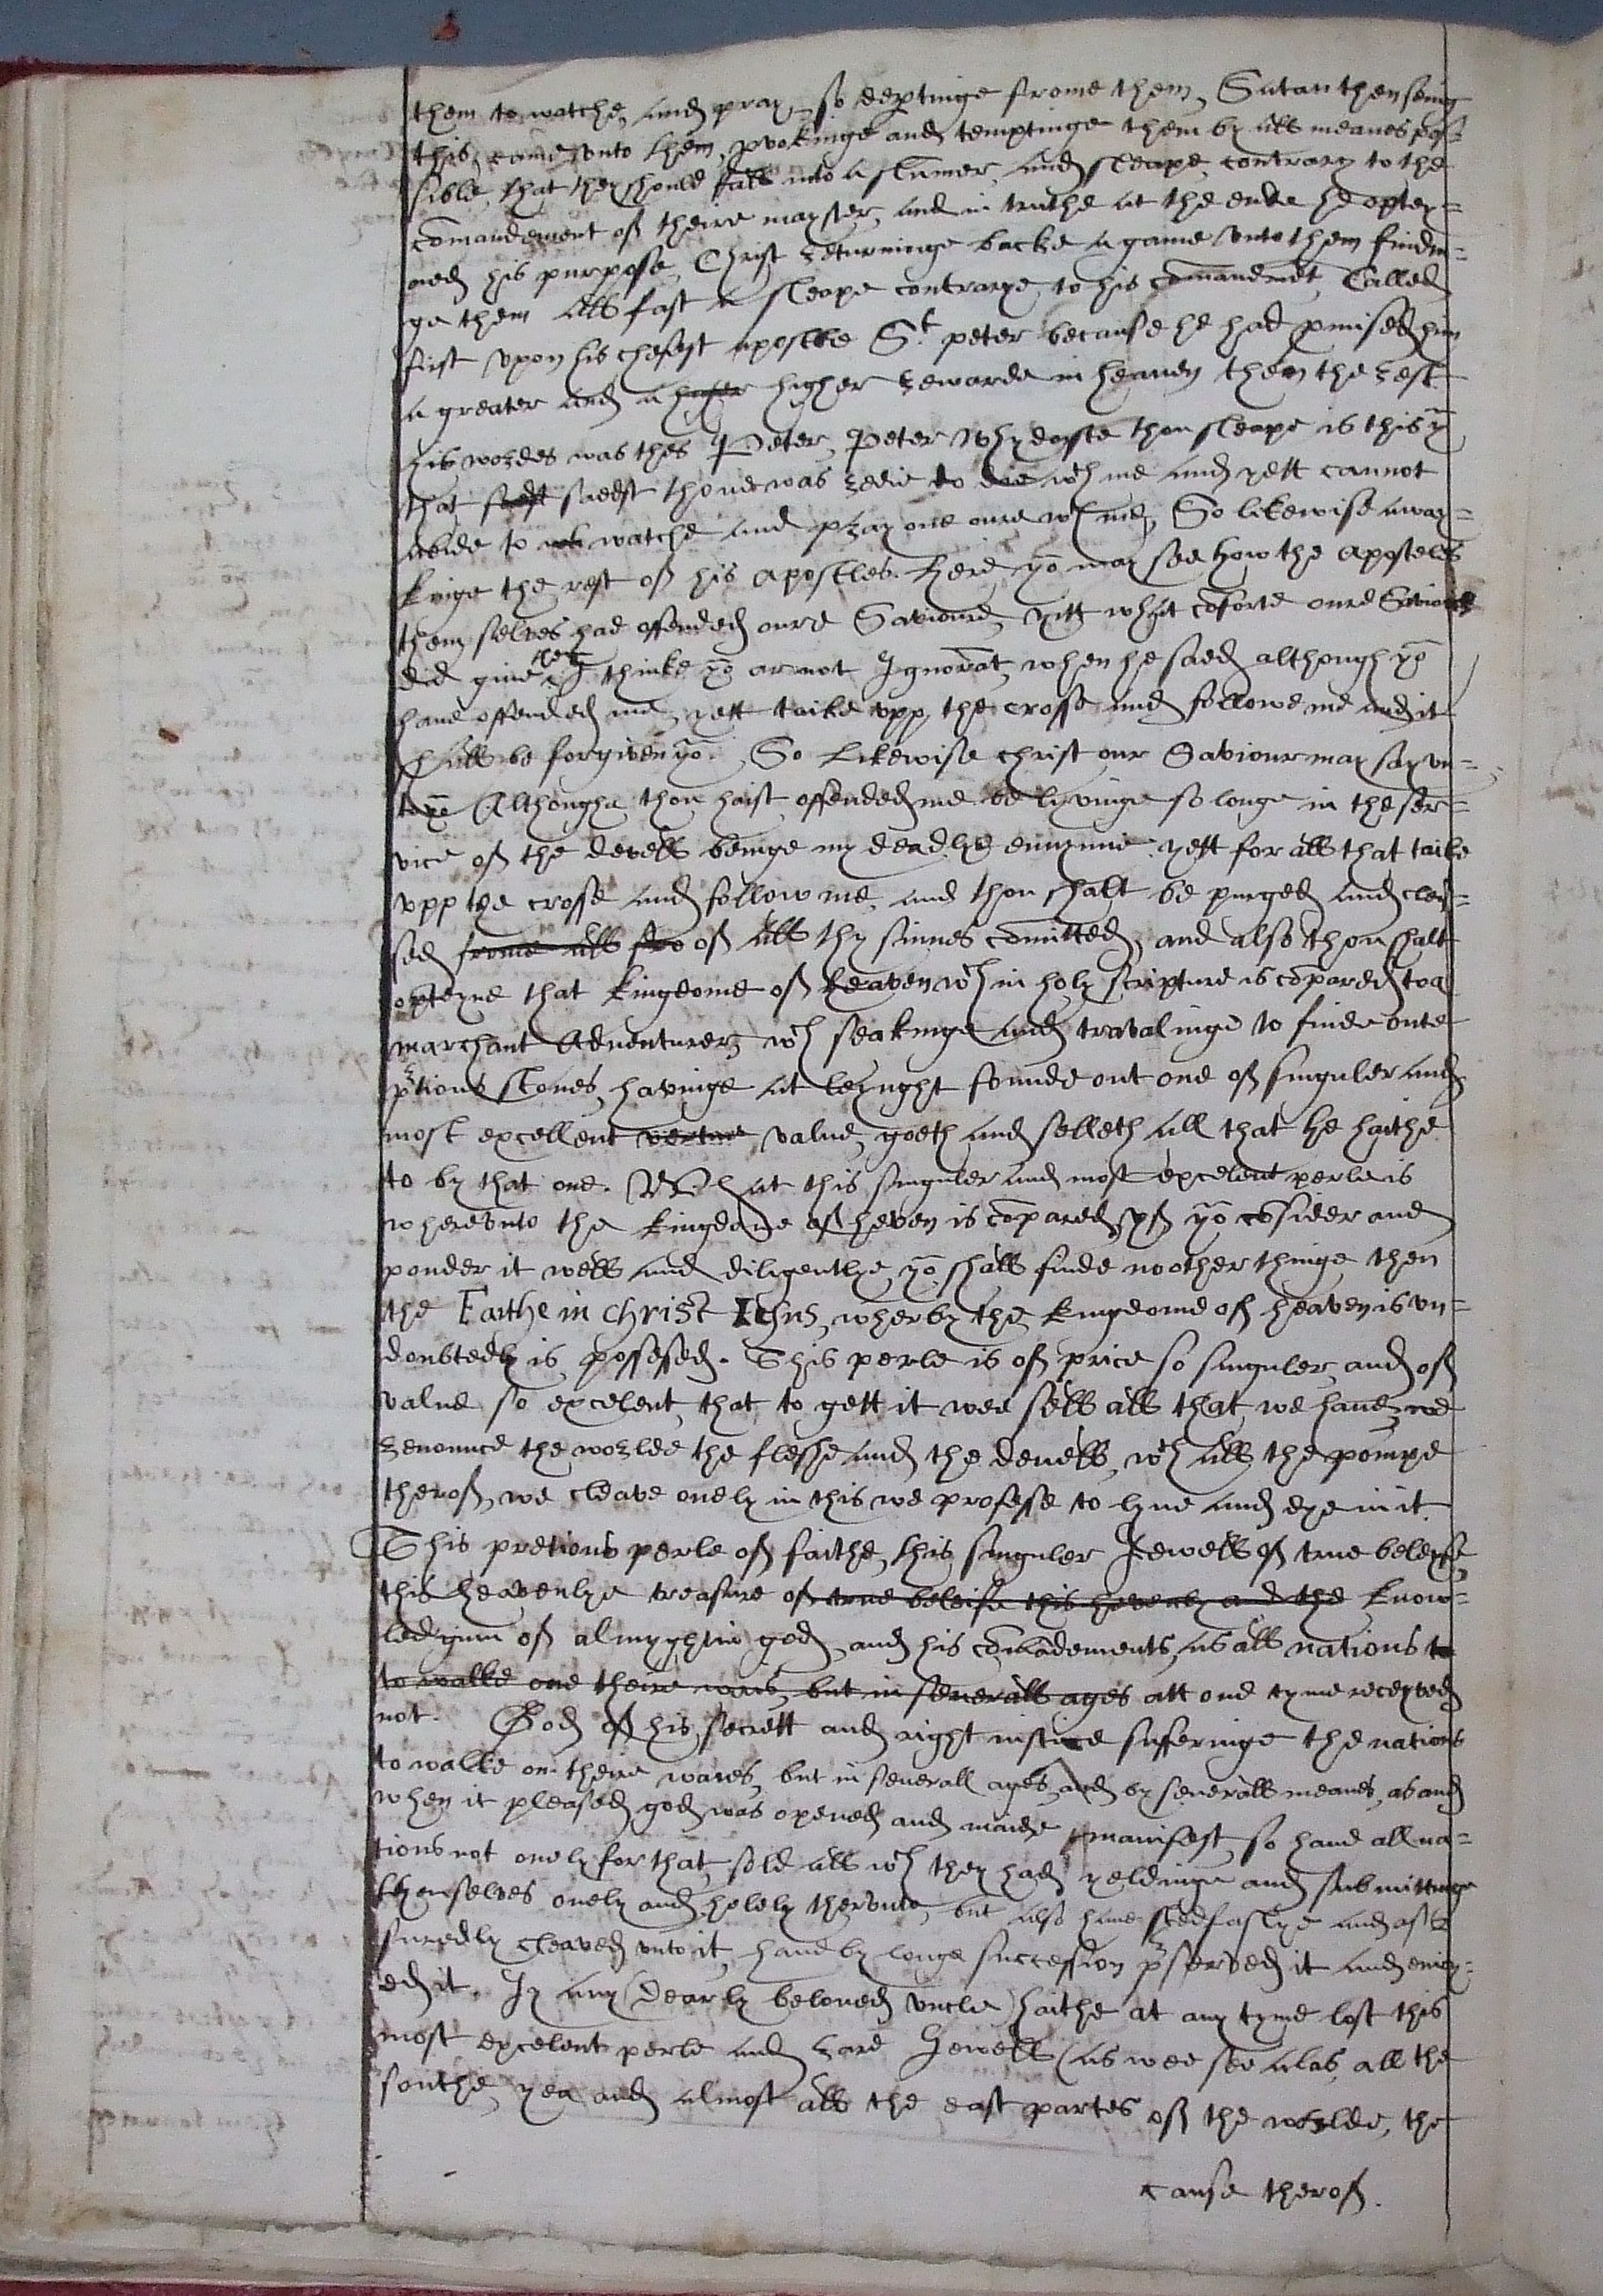 them to watche, and pray, so deptinge frome them, Satan then seing
this, came unto them, pvokinge and temptinge them by all meanes pos-
sible, that they should fall into a slumer, and sleape, contrary to the
comandement of theire mayster, and in truthe at the ende he optey-
ned his purposse, Christ returninge backe againe unto them findin-
ge them all fast a sleape contrarye to his comandmēt, Called
first upon his chefest apostle St peter because he had pmised him
a greater and a higher rewarde in heaven then the rest
his wordes was thes Peter, Peter why doyste thou sleape is this yu
that saedst thoue was redie to die wth me and yett cannot
abide to watche and pray one oure wth me, So likewise awa-
kinge the rest of his apostles. Here yo may see how the apostels
them selves had offended oure Savioure, yitt what cōforte oure Saviour
did give them I thinke yo ar not Ignorāt, when he saed although yo
have offended me, yett taike upp the crosse and followe me and it
shall be forgiven yo. So likewise christ our Saviour may say un-
to yo Althoughe thou haist offended me be lyvinge so longe in the ser-
vice of the devell beinge my deadlye ennymie: yett for all that taike
upp the crosse and follow me, and thou shalt be purged and clen-
sed frome all fro of all thy sinnes comitted, and also thou shalt
opteyne that kingdome of heaven wch in holy scripture is cōpared to a
marchant Adventurer, wch seakinge and travalinge to finde oute
ptious stones, havinge at leynght founde out one of singuler and
most excellent vertue value, goeth and selleth all that he haithe
to by that one. What this singuler and most excelent perle is
whereunto the kingdome of heven is cōpared, yf yo cōsider and
ponder it well and diligentlye, yo shall finde no other thinge then
the Faithe in christ Iehus, wherby the kingdome of heaven is un-
doubtedly is possesed. This perle is of price so singuler, and of
value so excelent, that to gett it wee sell all that we have, we
renounce the worlde the fleshe and the devell, wth all the pompe
therof, we cleave onely in this we professe to lyve and dye in it.
This pretious perle of faithe, this singuler Jewell of true beleyfe,
this heavenlye treasure of true beleife this hevenly and the know-
ledginn of almyghtie god, and his comādements, as all nations to
to walke one theire wais, but in severall ages att one tyme receyved
not. God of his secrett and right iustice sufferinge the nations
to walke on theire waies, but in severall ages, and by severall meanes, as and
when it pleased god was opened and maide manifest, so have all na-
tions not onely for that sold all wch they had yeldinge and submittinge
themselves onely and holely therunto, but also have stedfastlye and as
suredly cleaved unto it, have by longe succession pserved it and enioy-
ed it. If any (Dearly beloved Uncle) haithe at any tyme lost this
most excelent perle and rare Jewell (as wee see alas, all the
southe, yea and almost all the east partes of the worlde, the
cause therof.